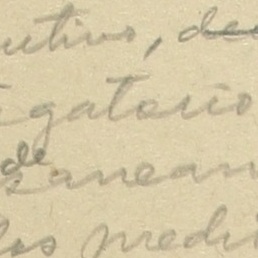 utivo, de
igatorio
de
sanean
los medi